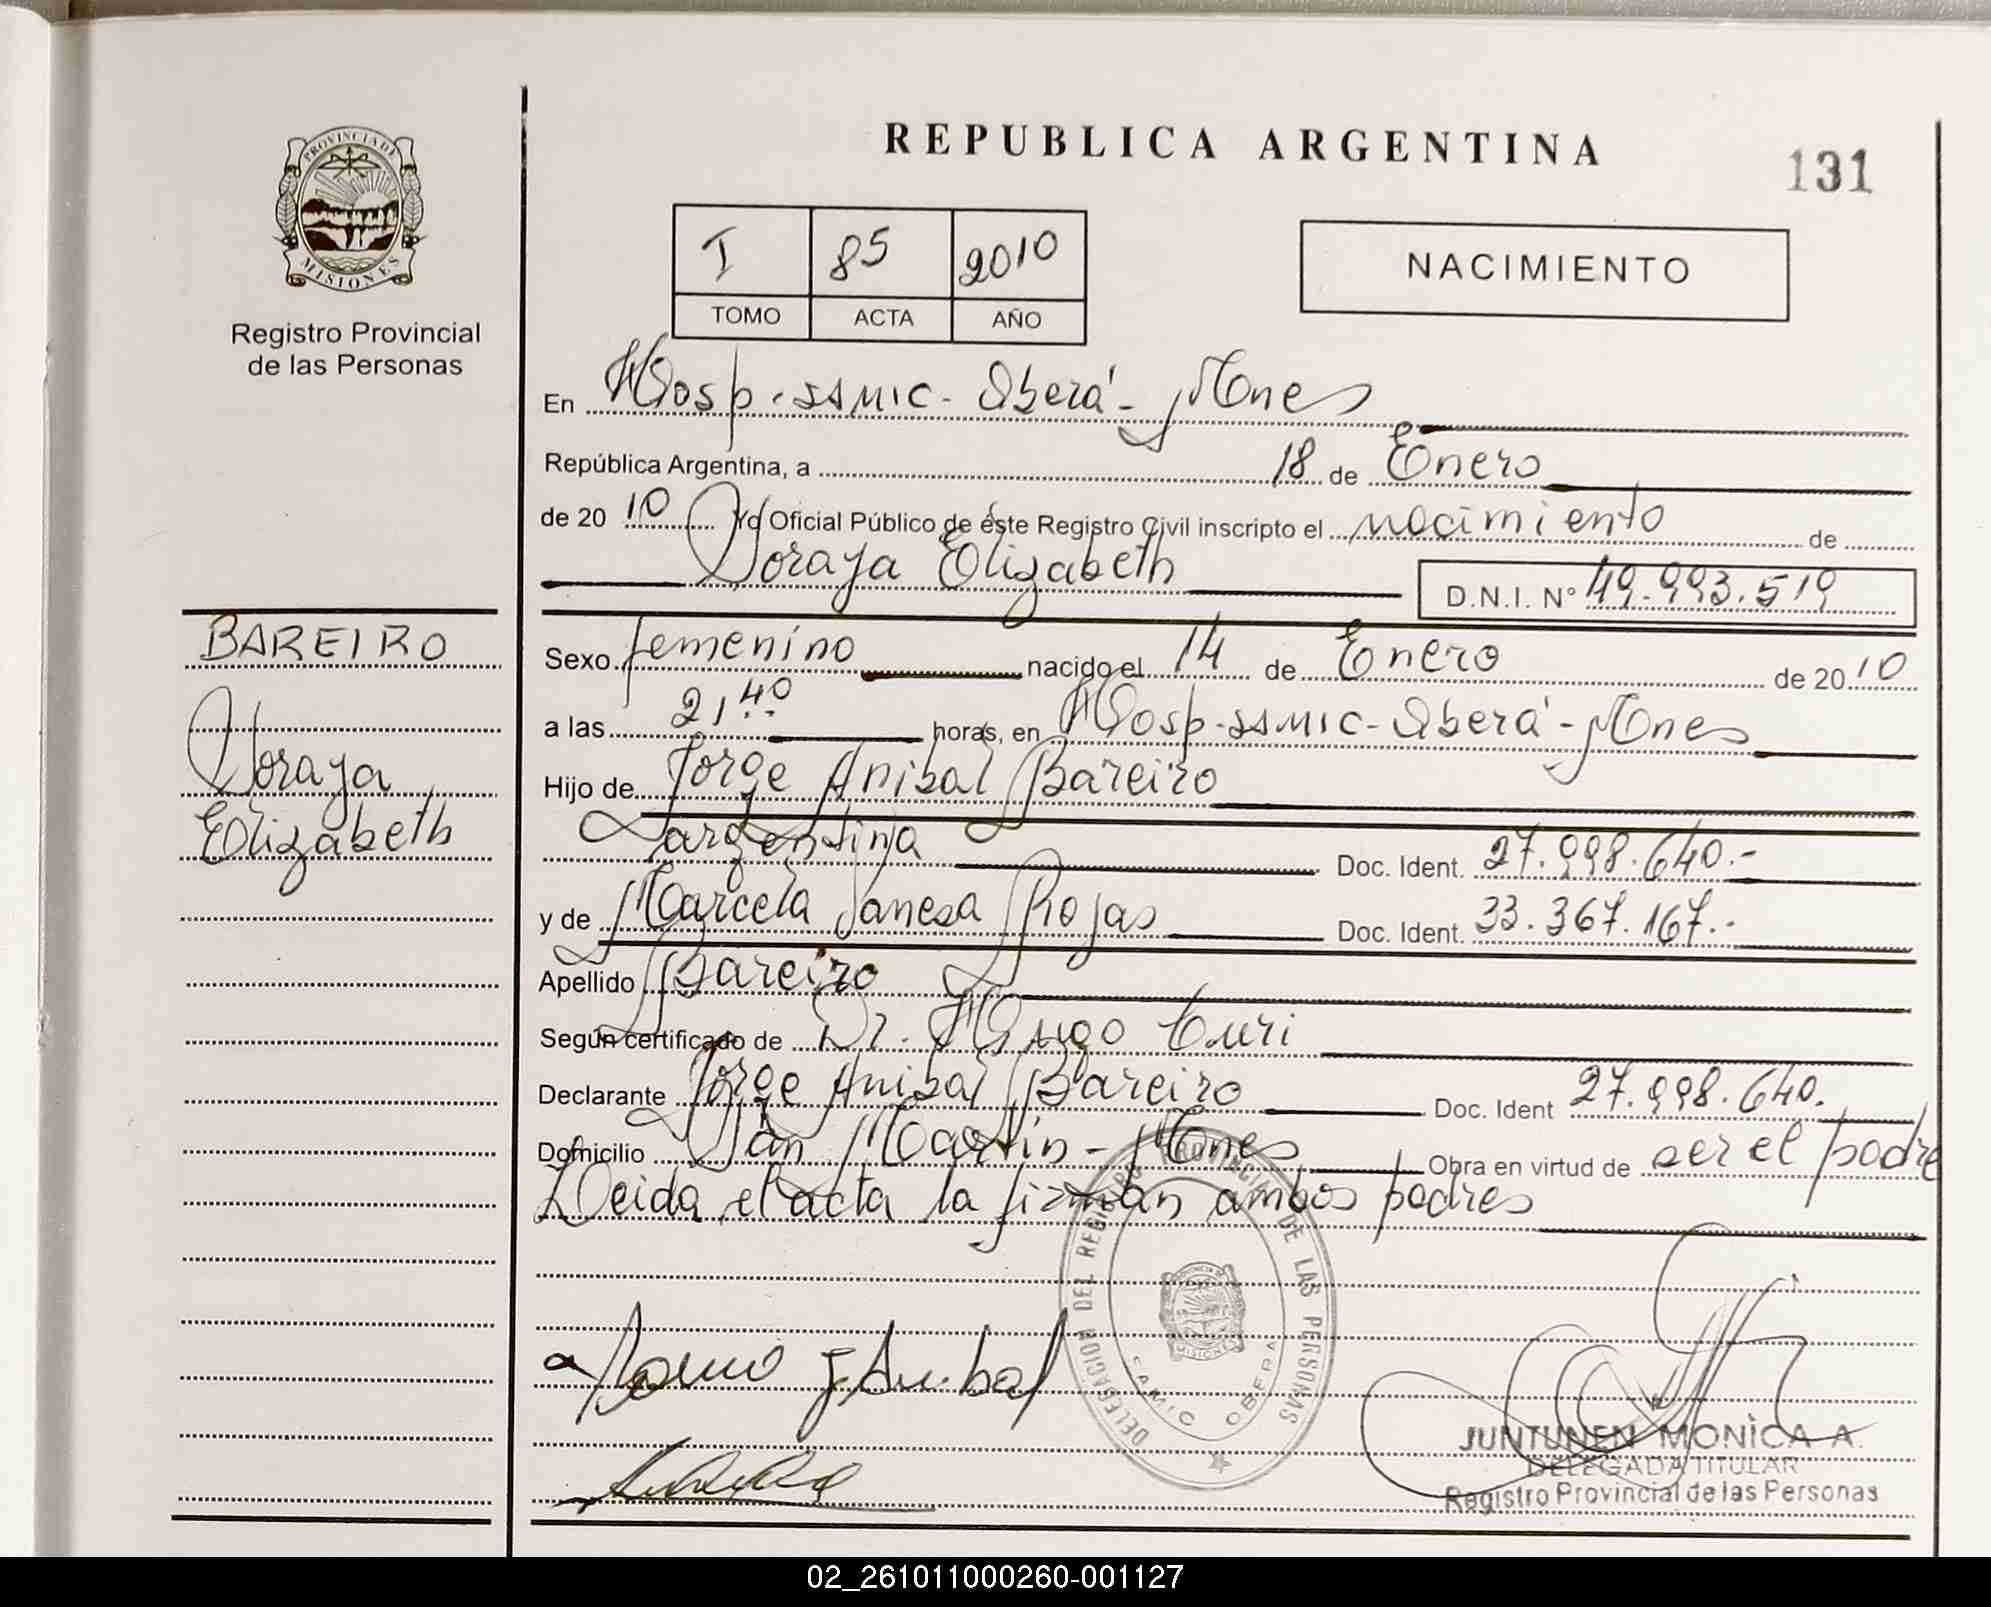 REPUBLICA ARGENTINA
131
PROVINCIA DE
MISIONES
Registro Provincial
de las Personas
I 85 2010
TOMO ACTA AÑO
NACIMIENTO
En Hosp. SAMIC - Oberá - Mnes
República Argentina, a 18 de Enero
de 20 10 Yo Oficial Público de éste Registro Civil inscripto el nacimiento de
Soraya Elizabeth D.N.I. N° 49.993.519
BAREIRO
Soraya
Elizabeth
Sexo femenino nacido el 14 de Enero de 20 10
a las 21,40 horas, en Hosp. SAMIC - Oberá - Mnes
Hijo de Jorge Anibal Bareiro
argentina Doc. Ident. 27.998.640.-
y de Marcela Vanesa Rojas Doc. Ident. 33.367.167.-
Apellido Bareiro
Según certificado de Dr. Hugo Curi
Declarante Jorge Anibal Bareiro Doc. Ident 27.998.640.
Domicilio San Martín - Mnes Obra en virtud de ser el padre
Leida el acta la firman ambos padres
DELEGACION DEL REGISTRO PROVINCIAL DE LAS PERSONAS
SAMIC OBERA
J. Anibal
JUNTUNEN MONICA A.
DELEGADA TITULAR
Registro Provincial de las Personas
02_261011000260-001127